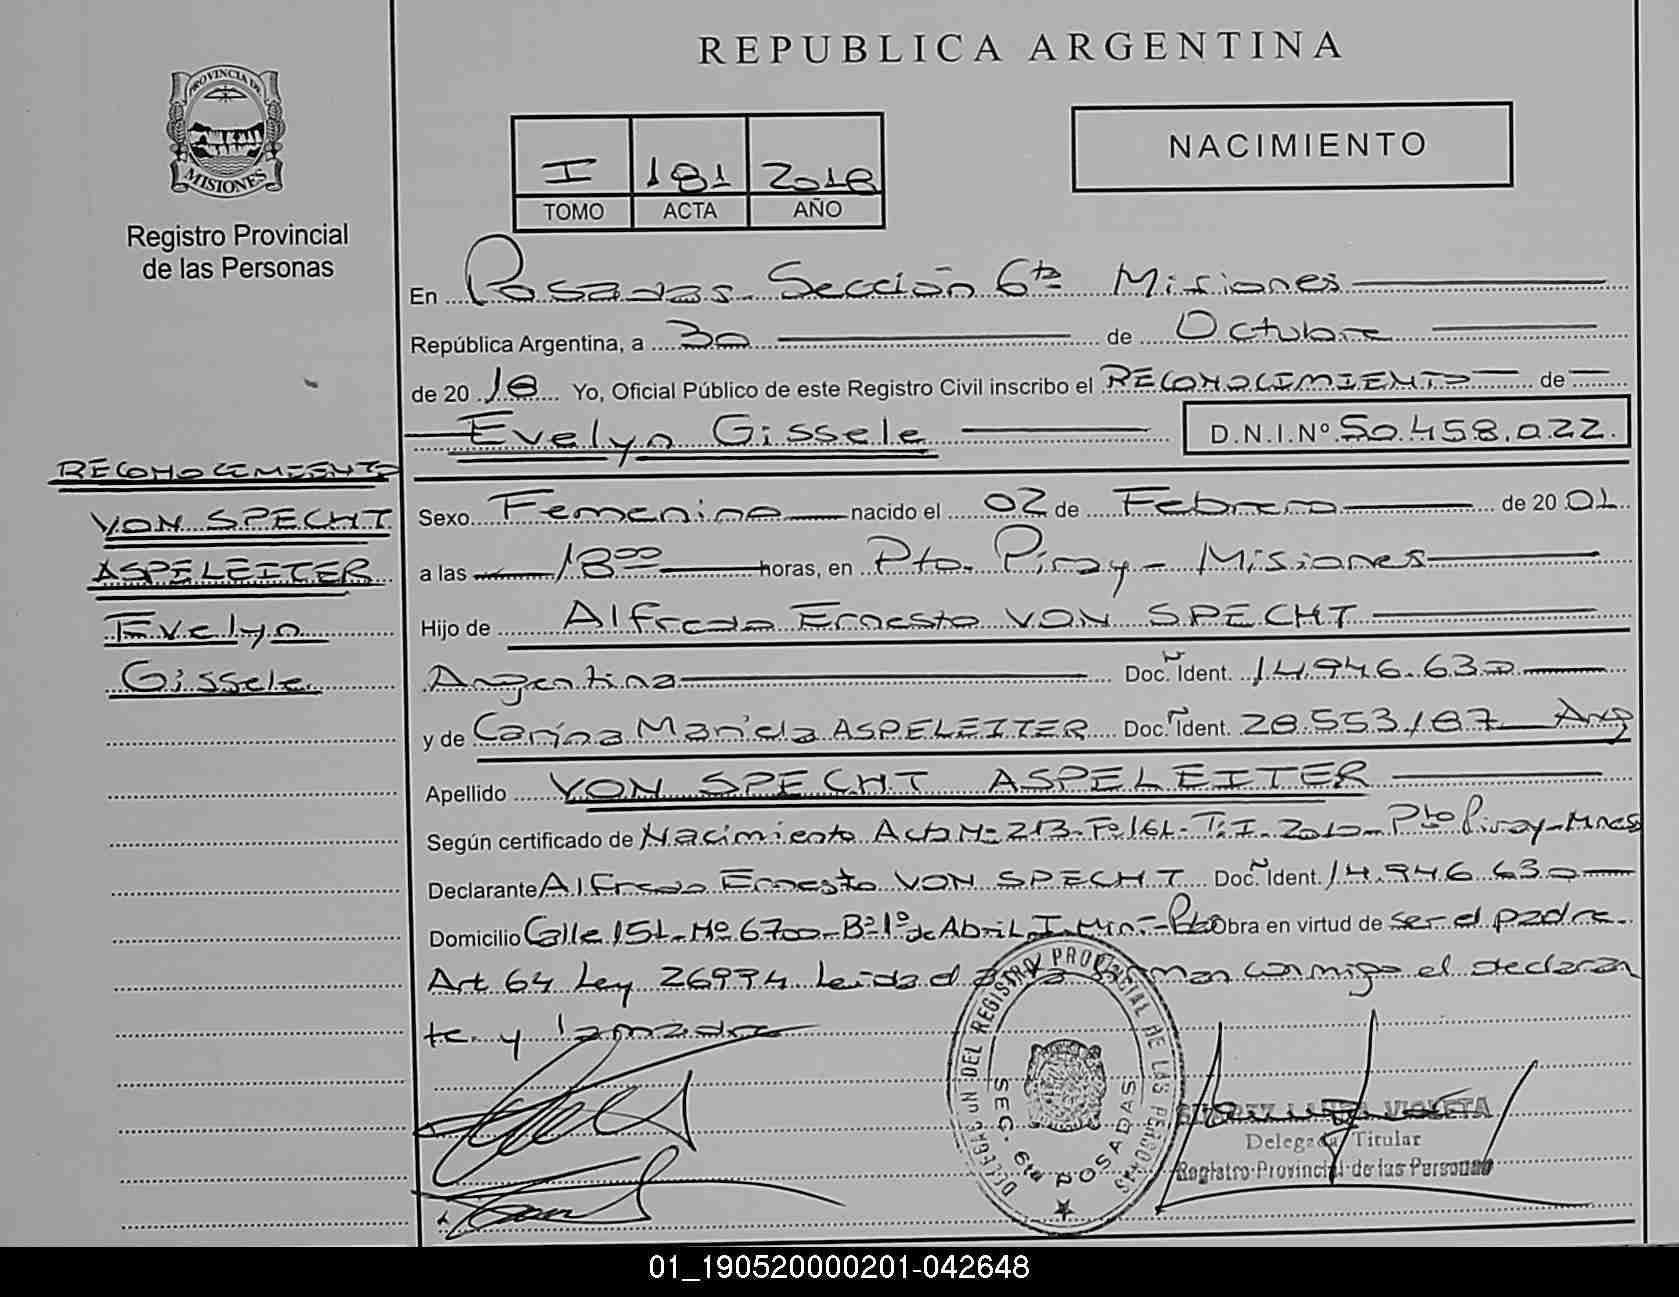 REPUBLICA ARGENTINA
PROVINCIA DE
MISIONES
Registro Provincial
de las Personas
I 181 2018
TOMO ACTA AÑO
NACIMIENTO
En Posadas Sección 6ta Misiones
República Argentina, a 30 de Octubre
de 20 18 Yo, Oficial Público de este Registro Civil inscribo el RECONOCIMIENTO de
Evelyn Gissele D.N.I.Nº 50.458.022
RECONOCIMIENTO
VON SPECHT
ASPELEITER
Evelyn
Gissele
Sexo Femenino nacido el 02 de Febrero de 20 01
a las 18:00 horas, en Pto. Piray - Misiones
Hijo de Alfredo Ernesto VON SPECHT
Argentina Doc. Ident. 14.946.630
y de Carina Mariela ASPELEITER Doc. Ident. 28.553.187 Arg
Apellido VON SPECHT ASPELEITER
Según certificado de Nacimiento Acta Nº 213-Fº161-T:I-2010-Pto Piray-Mnes
Declarante Alfredo Ernesto VON SPECHT Doc. Ident. 14.946.630
Domicilio Calle 151-Nº 6700-Bº1º de Abril-I. Min.- Obra en virtud de ser el padre.
Art 64 Ley 26994 Leida el acta firman conmigo el declaran
te y la madre
DELEGACION DEL REGISTRO PROVINCIAL DE LAS PERSONAS
SEC. 6ta POSADAS
VIOLETA
Delegada Titular
Registro Provincial de las Personas
01_190520000201-042648